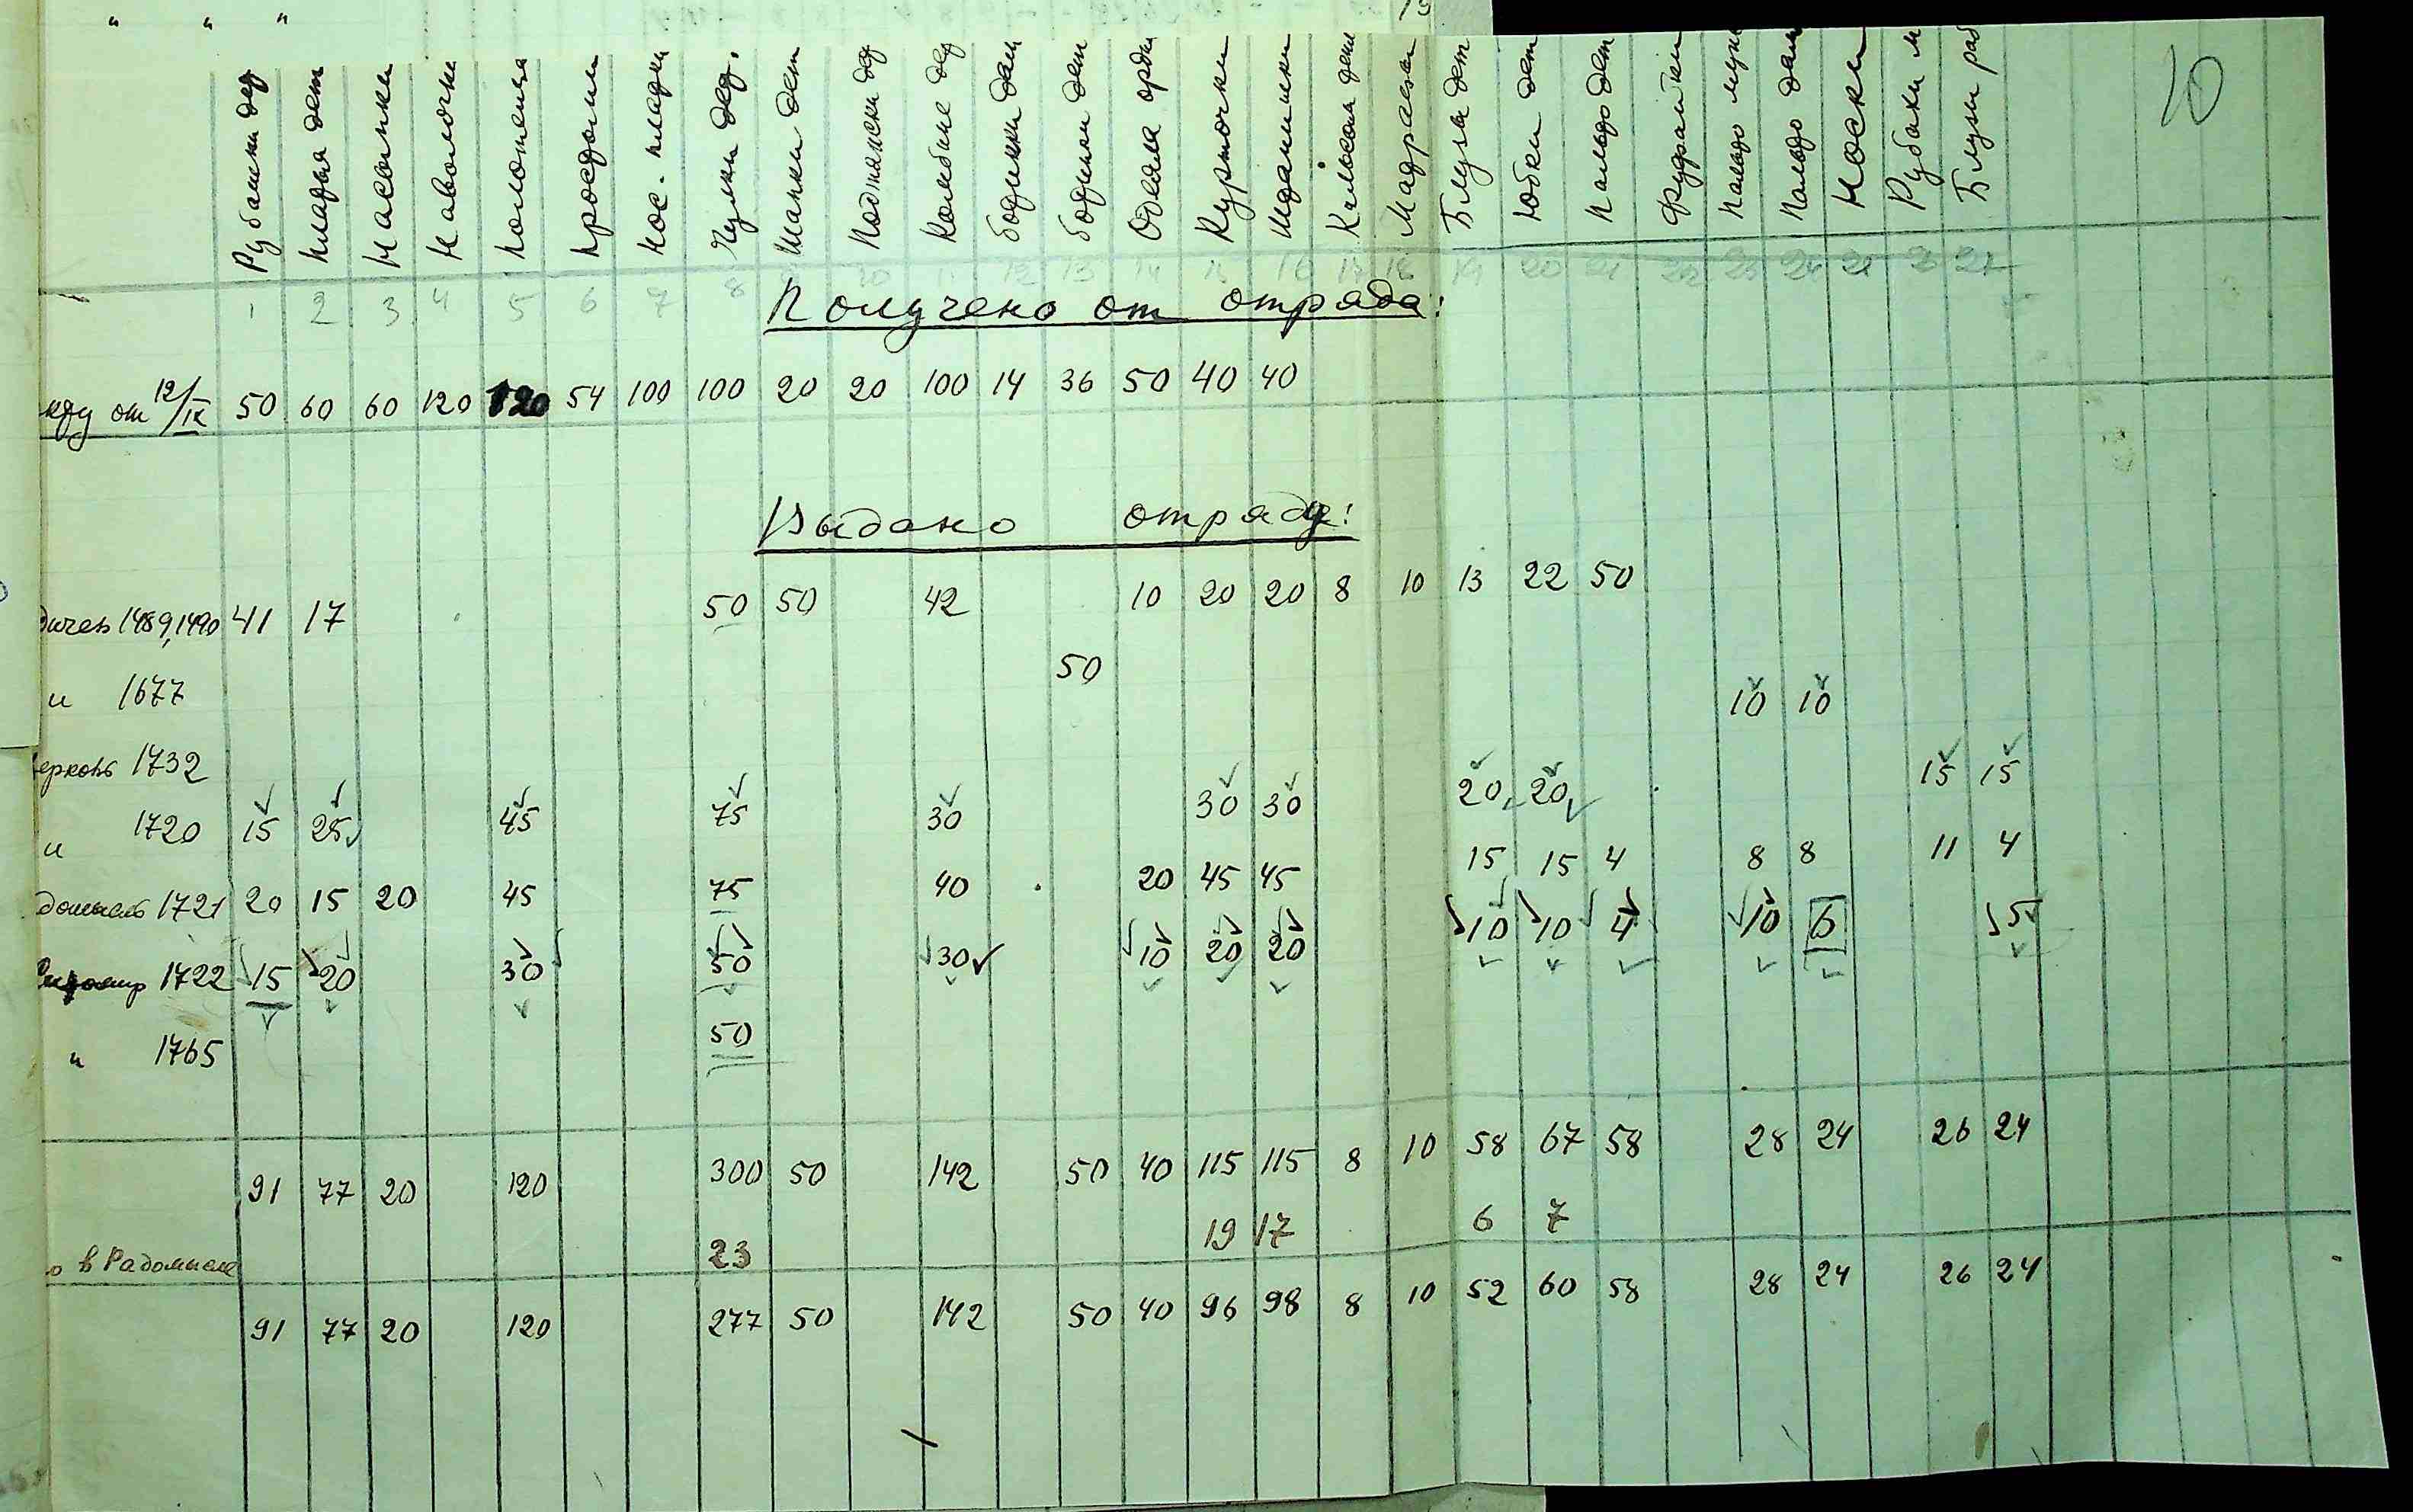 " " "
10
Рубашки дет
Платья дет
Насыпки
Наволочки
Полотенца
Простыни
Нос. платки
Чулки дет.
Шапки дет
Подтяжки дет
Комбине дет
Ботинки дам
Ботинки дет
Одеяла
Курточки
Штанишки
Кальсоны дет
Матрасы
Блузы дет
Юбки дет
Пальто дет
Фуфайки
Пальто муж
Пальто дам
Носки
Рубахи м
Блузы раб
1 2 3 4 5 6 7 8 9 10 11 12 13 14 15 16 17 18 19 20 21 22 23 24 25 26 27
Получено от отряда:
от 12/IX 50 60 60 120 120 54 100 100 20 20 100 14 36 50 40 40
Выдано отряду:
дичев 1489,1490 41 17 50 50 42 10 20 20 8 10 13 22 50
" 1677 50
ерковь 1732 10 10
" 1720 15 25 45 75 30 30 30 20 20 15 15
домысль 1721 20 15 20 45 75 40 20 45 45 15 15 4 8 8 11 4
1722 15 20 30 50 30 10 20 20 10 10 4 10 6 5
" 1765 50
91 77 20 120 300 50 142 50 40 115 115 8 10 58 67 58 28 24 26 24
о в Радомысле 23 19 17 6 7
91 77 20 120 277 50 142 50 40 96 98 8 10 52 60 58 28 24 26 24